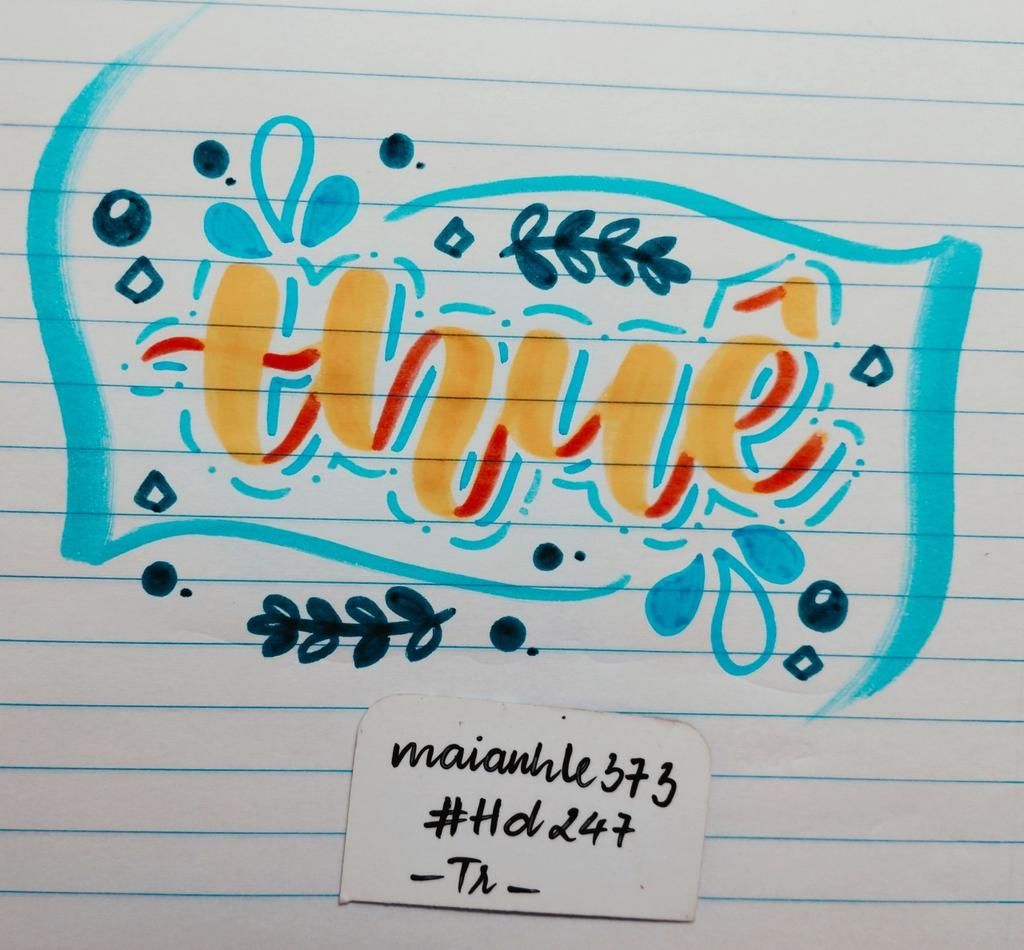 thuê
maianhle373
#Hd247
-Tr-